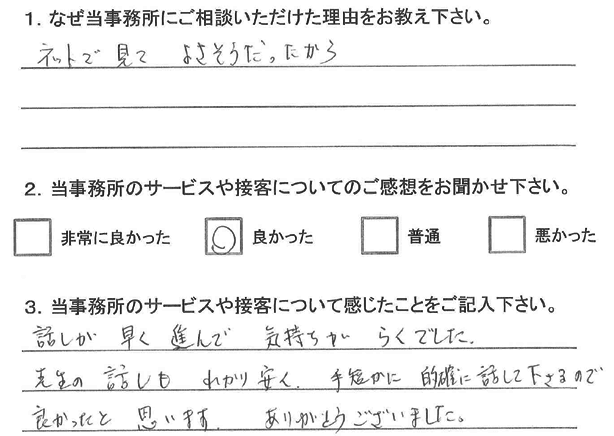 1. なぜ当事務所にご相談いただけた理由をお教え下さい。
ネットで見て よさそうだったから
2. 当事務所のサービスや接客についてのご感想をお聞かせ下さい。
非常に良かった 良かった 普通 悪かった
3. 当事務所のサービスや接客について感じたことをご記入下さい。
話しが 早く 進んで 気持ちが らくでした.
先生の 話しも わかり 安く. 手短かに 的確に話して下さるので
良かったと 思います. ありがとうございました。